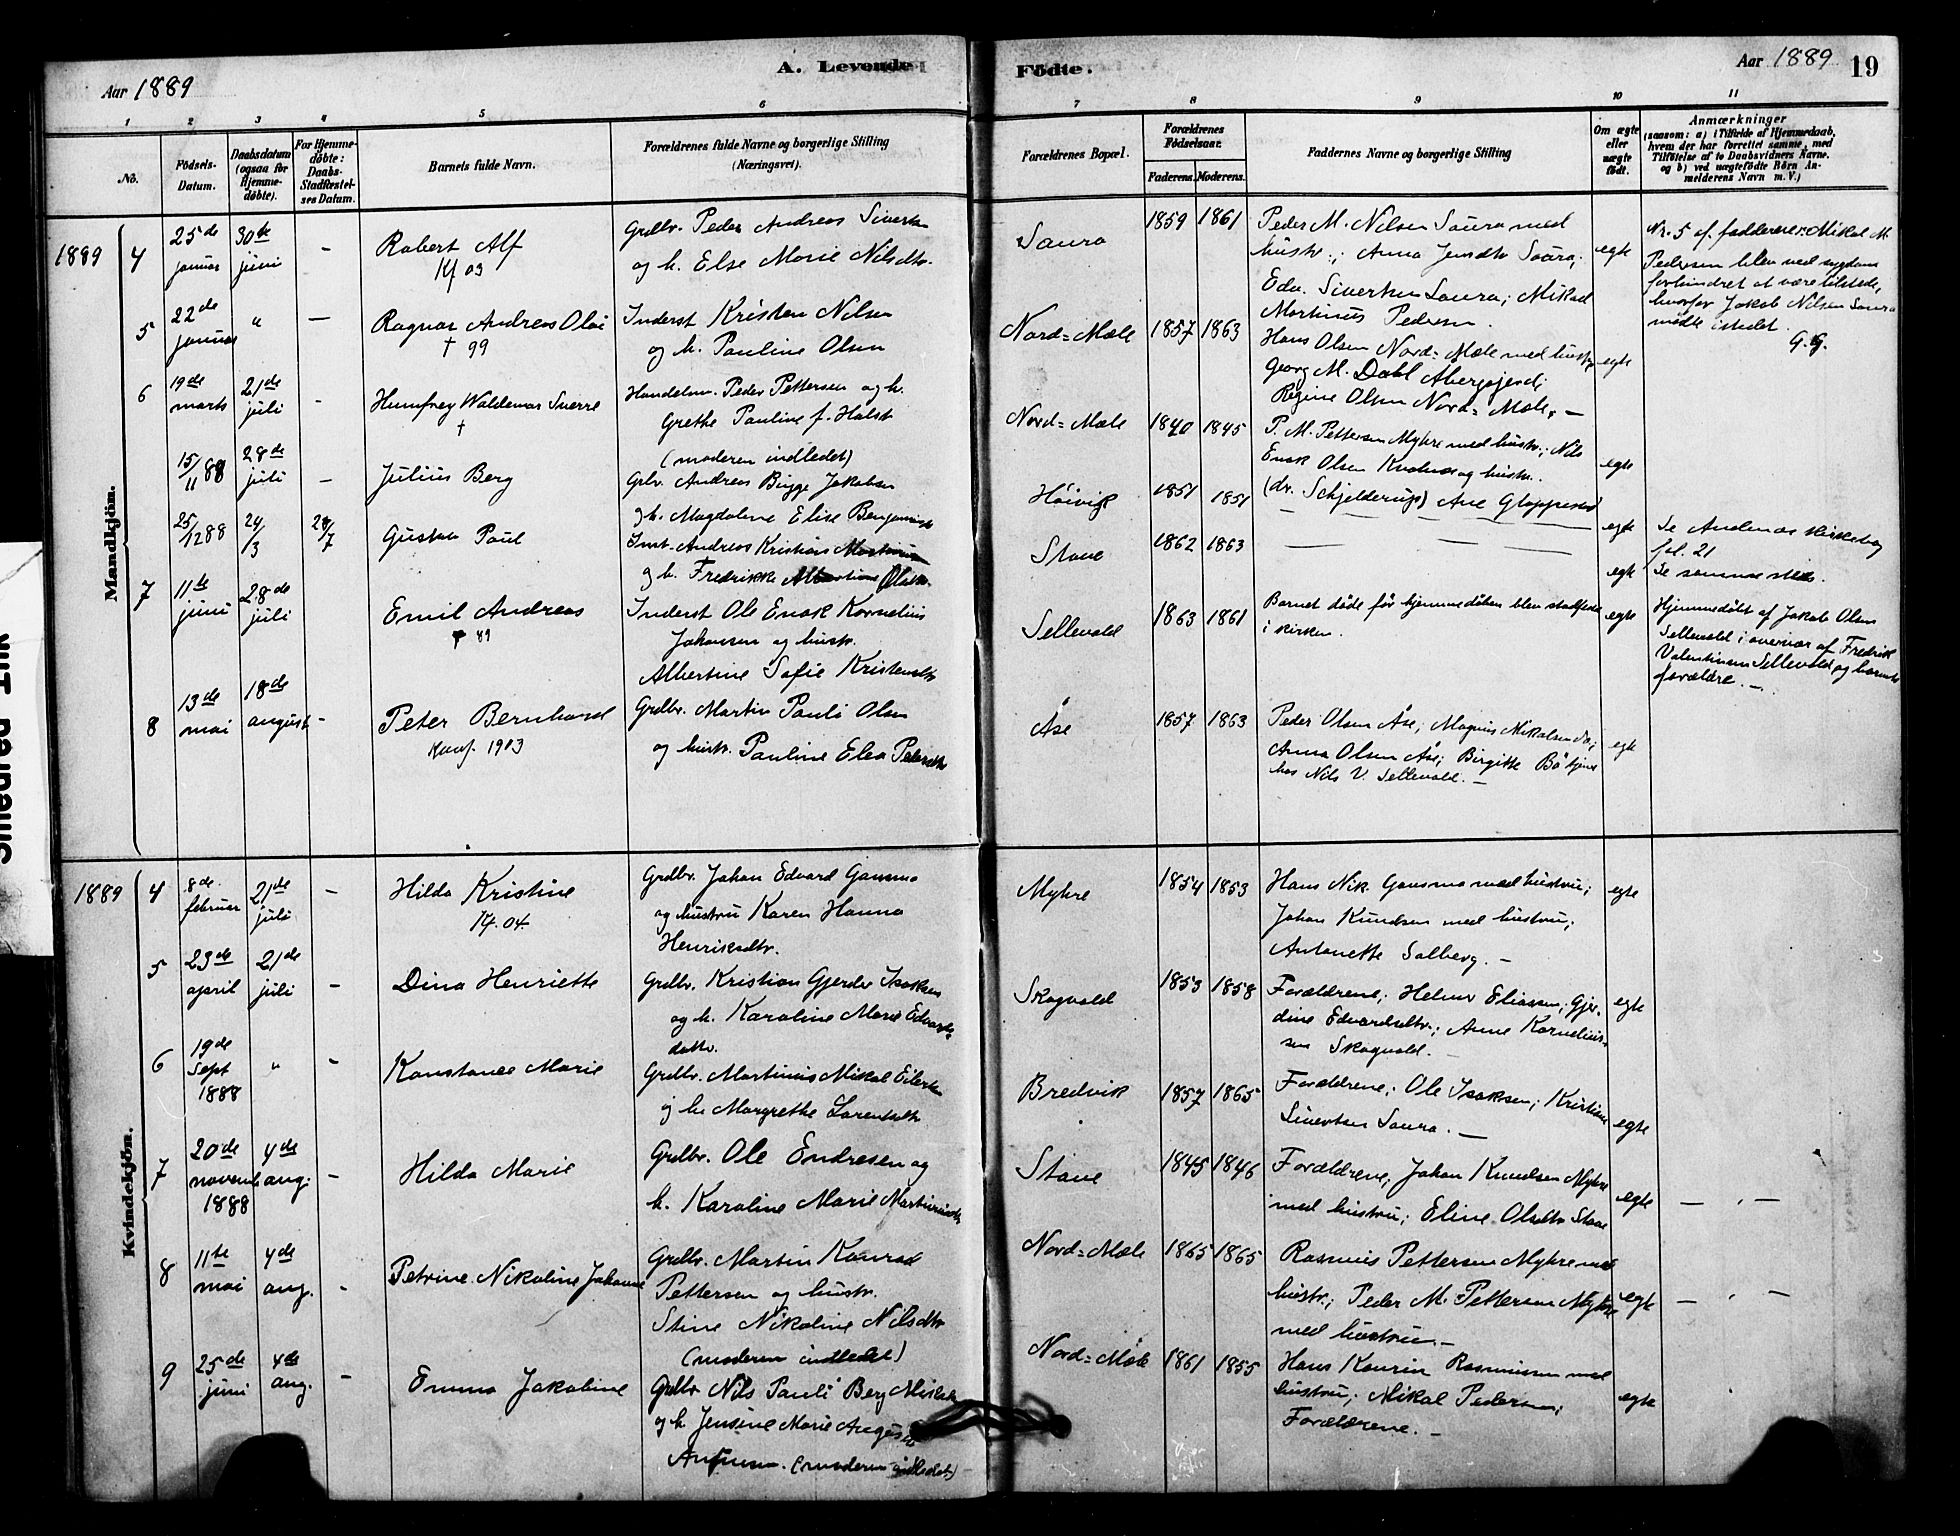 Aar 1889
A. Levende
Födte.
Aar 1889
19
1
2
3
4
5
6
7
8
9
10
11
No.
Födsels-
Datum.
Daabsdatum
(ogsaa for
Hjemme-
döbte).
For Hjemme-
döbte:
Daabs-
Stadfæstel-
ses Datum.
Barnets fulde Navn.
Forældrenes fulde Navne og borgerlige Stilling
(Næringsvei).
Forældrenes Bopæl.
Forældrenes
Födselsaar.
Faderens.
Moderens.
Faddernes Navne og borgerlige Stilling
Om ægte
eller
uægte
født.
Anmærkninger
(saasom: a) i Tilfælde af Hjemmedaab,
hvem der har forrettet samme, med
Tilföielse af to Daabsvidners Navne.
og b) ved uægtefödte Börn An-
melderens Navn m. V.)
Mandkjön.
1889
4
25de
januar
30te
juni
-
Robert Alf
Kf 03
Grdbr. Peder Andreas Sivertsen
og h. Else Marie Nilsdtr.
Saura
1859
1861
Peder M. Nilsen Saura med
hustr.; Anna Jensdtr Saura;
Edv. Sivertsen Saura; Mikael
Martinus Pedersen.
egte
Nr. 5 af fadderne: Mikal M.
Pedersen blev ved sygdom
forhindret at være tilstede,
hvorfor Jakob Nilsen Saura
mødte istedet.
G.G.
5
22de
januar
"
—
Ragnar Andreas Olai
† 99
Inderst Kristen Nilsen
og h. Pauline Olsen
Nord=Mæle
1857
1863
Hans Olsen Nord=Mæle med hustr;
Georg M. Dahl Åbergsjord;
Regine Olsen Nord=Mæle. —
egte
6
19de
marts
21de
juli
-
Humfrey Waldemar Sverre
†
Handelsm. Peder Pettersen og h.
Grethe Pauline f. Holst
(moderen indledet)
Nord=Mæle
1840
1845
P. M. Pettersen Myhre med hustr.; Nils
Enok Olsen og hustr.
egte
15/11 88
28de
juli
-
Julius Berg
Grbr. Andreas Bugge Jakobsen
og h. Magdalene Elise
Höivik
1851
1851
(dr. Schjelderup) Ane
egte
Se Andenæs kirkebog
fol. 21
25/12 88
24/3
28/7
Gustav Paul
Inst. Andreas Kristian
og h. Fredrikke
Stave
1862
1863
— — —
egte
Se samme sted.
7
11te
juni
28de
juli
Emil Andreas
† 89
Inderst Ole Enok Kornelius
Johansen og hustr.
Albertine Sofie Kristensdtr
Sellevold
1863
1861
Barnet døde før hjemmedåben blev stadfestet
i kirken.
egte
Hjemmedöbt af Jakob Olsen
Sellevold i overvær af Fredrik
Valentinsen Sellevold og barnets
forældre. —
8
13de
mai
18de
august
-
Peter Bernhard
Konf. 1903
Grdbr. Martin Pauli Olsen
og hustr. Pauline Elea Pedersdtr
Åse
1857
1863
Peder Olsen Åse; Magnus Mikalsen do;
Anna Olsen Åse; Birgitte Bö tjen.
hos Nils V. Sellevold. —
egte
Kvindekjön.
1889
4
8de
februar
21de
juli
-
Hilda Kristine
Kf. 04.
Grdbr. Johan Edvard Gansmo
og hustru Karen Hanna
Henriksdtr.
Myhre
1854
1853
Hans Nik. Gansmo med hustru;
Johan Knudsen med hustru;
Antonette Solberg. —
egte
5
23de
april
21de
juli
-
Dina Henriette
Grdbr. Kristian Gjerder Isaksen
og h. Karoline Marie Edvards-
dattr.
Skogvold
1853
1858
Forældrene; Helmer Eliassen; Gjer-
dine Edvardsdtr.; Anne Kornelius-
sen Skogvold. —
egte
6
19de
Sept
1888
"
-
Konstance Marie
Grdbr. Martinus Mikal Eilertsen
og h. Margrethe Lorentsdtr
Bredvik
1857
1865
Forældrene; Ole Isaksen; Kristian
Sivertsen Saura. —
egte
7
20de
novemb
1888
4de
aug.
-
Hilda Marie
Grdbr. Ole Endresen og
h. Karoline Marie Martinusdtr
Stave
1845
1846
Forældrene, Johan Knudsen Myhre
med hustru; Eline Olsdtr Stave
egte
— " —
8
11te
mai
4de
aug.
-
Petrine Nikoline Johanne
Grdbr. Martin Konrad
Pettersen og hustr.
Stine Nikoline Nilsdtr
(moderen indledet)
Nord=Mæle
1865
1865
Rasmus Pettersen Myhre med
hustr.; Peder M. Pettersen Myhre
med hustru. —
egte
— " —
9
25de
juni
4de
aug.
-
Emma Jakobine
Grdbr Nils Pauli Berg
og h. Jensine Marie
(moderen indledet)
Nord=Mæle
1861
1855
Hans Konrin Rasmussen med
hustru; Mikal Pedersen;
Forældrene. —
egte
Smedred Ink